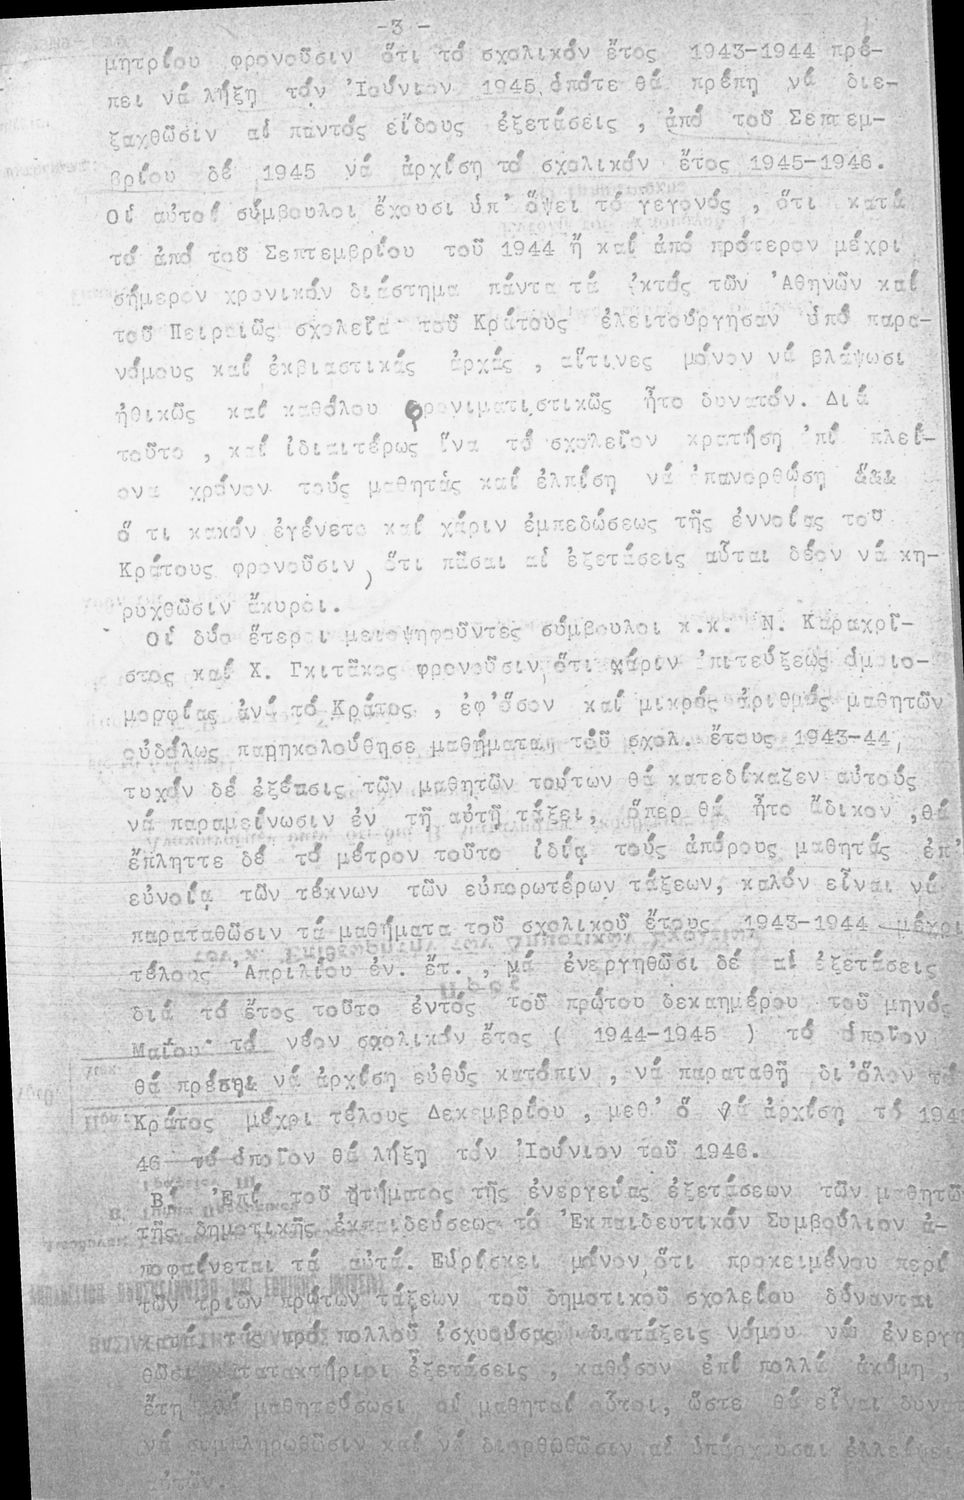 -3 -
μητρίου φρονοῦσιν ὅτι τό σχολικόν ἔτος 1943-1944 πρέ-
πει νά λήξῃ τόν Ἰούνιον 1945, ὁπότε θά πρέπῃ νά διε-
ξαχθῶσιν αἱ παντός εἴδους ἐξετάσεις , ἀπό τοῦ Σεπτεμ-
βρίου δέ 1945 νά ἀρχίσῃ τό σχολικόν ἔτος 1945-1946.
Οἱ αὐτοί σύμβουλοι ἔχουσι ὑπ' ὄψει τό γεγονός , ὅτι κατά
τό ἀπό τοῦ Σεπτεμβρίου τοῦ 1944 ἤ καί ἀπό πρότερον μέχρι
σήμερον χρονικόν διάστημα πάντα τά ἐκτός τῶν Ἀθηνῶν καί
τοῦ Πειραιῶς σχολεῖα τοῦ Κράτους ἐλειτούργησαν ὑπό παρα-
νόμους καί ἐκβιαστικάς ἀρχάς , αἵτινες μόνον νά βλάψωσι
ἠθικῶς καί καθόλου φρονιματιστικῶς ἦτο δυνατόν. Διά
τοῦτο , καί ἰδιαιτέρως ἵνα τό σχολεῖον κρατήσῃ ἐπί πλεί-
ονα χρόνον τούς μαθητάς καί ἐλπίσῃ νά ἐπανορθώσῃ
ὅ τι κακόν ἐγένετο καί χάριν ἐμπεδώσεως τῆς ἐννοίας τοῦ
Κράτους φρονοῦσιν, ὅτι πᾶσαι αἱ ἐξετάσεις αὗται δέον νά κη-
ρυχθῶσιν ἄκυροι.
Οἱ δύο ἕτεροι μειοψηφοῦντες σύμβουλοι κ.κ. Ν. Καραχρῖ-
στος καί Χ. Γκιτᾶκος φρονοῦσιν, ὅτι χάριν ἐπιτεύξεως ὁμοιο-
μορφίας ἀνά τό Κράτος , ἐφ'ὅσον καί μικρός ἀριθμός μαθητῶν
οὐδόλως παρηκολούθησε μαθήματα, τοῦ σχολ. ἔτους 1943-44,
τυχόν δέ ἐξέασις τῶν μαθητῶν τούτων θά κατεδίκαζεν αὐτούς
νά παραμείνωσιν ἐν τῇ αὐτῇ τάξει, ὅπερ θά ἦτο ἄδικον ,θά
ἔπληττε δέ τό μέτρον τοῦτο ἰδίᾳ τούς ἀπόρους μαθητάς ἐπ'
εὐνοίᾳ τῶν τέκνων τῶν εὐπορωτέρων τάξεων, καλόν εἶναι νά
παραταθῶσιν τά μαθήματα τοῦ σχολικοῦ ἔτους 1943-1944 μέχρι
τέλους Ἀπριλίου ἐν. ἔτ. , νά ἐνεργηθῶσι δέ αἱ ἐξετάσεις
διά τό ἔτος τοῦτο ἐντός τοῦ πρώτου δεκαημέρου τοῦ μηνός
Μαΐου· τό νέον σχολικόν ἔτος ( 1944-1945 ) τό ὁποῖον
θά πρέπῃ νά ἀρχίσῃ εὐθύς κατόπιν , νά παραταθῇ δι'ὅλον τό
Κράτος μέχρι τέλους Δεκεμβρίου , μεθ' ὅ νά ἀρχίσῃ τό 194
46 τό ὁποῖον θά λήξῃ τόν Ἰούνιον τοῦ 1946.
Β. Ἐπί τοῦ ζητήματος τῆς ἐνεργείας ἐξετάσεων τῶν μαθητῶ
τῆς δημοτικῆς ἐκπαιδεύσεως τό Ἐκπαιδευτικόν Συμβούλιον ἀ-
ποφαίνεται τά αὐτά. Εὑρίσκει μόνον, ὅτι προκειμένου περί
τῶν τριῶν πρώτων τάξεων τοῦ δημοτικοῦ σχολείου δύνανται
κατά τάς πρό πολλοῦ ἰσχυούσας διατάξεις νόμου νά ἐνεργη
θῶσι κατατακτήριοι ἐξετάσεις , καθόσον ἐπί πολλά ἀκόμη ,
ἔτη θά μαθητεύσωσι οἱ μαθηταί οὗτοι, ὥστε θά εἶναι δυνατ
νά συμπληρωθῶσιν καί νά διορθωθῶσιν αἱ ὑπάρχουσαι ἐλλείψει
αὐτῶν.